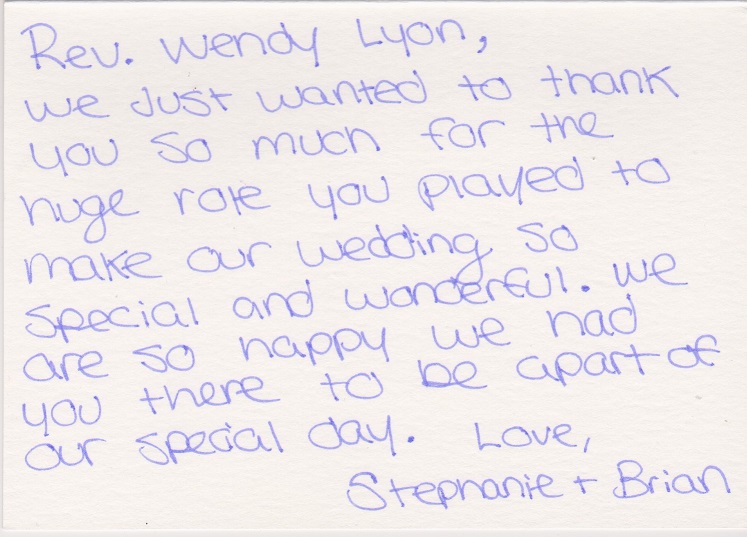 Rev. Wendy Lyon,
we just wanted to thank
you so much for the
huge role you played to
make our wedding so
special and wonderful. We
are so happy we had
you there to be apart of
our special day. Love,
Stephanie + Brian